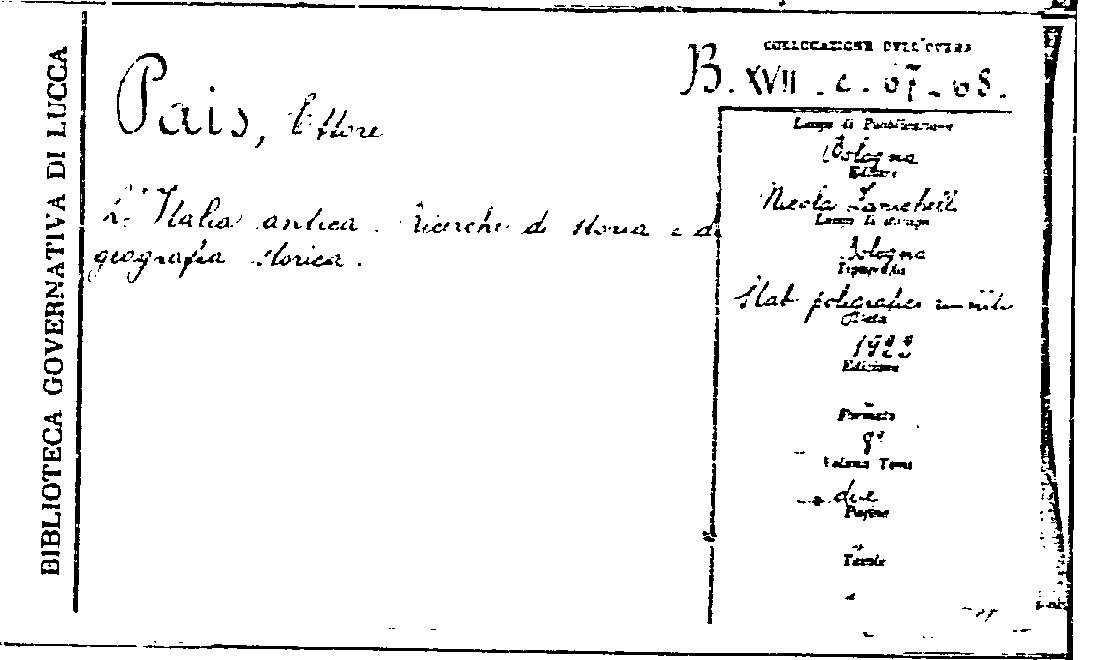 BIBLIOTECA GOVERNATIVA DI LUCCA
Pais, Ettore
L'Italia antica. Ricerche di storia e di
geografia storica.
COLLOCAZIONE DELL'OPERA
B. XVII. c. 67-68.
Luogo di Pubblicazione
Bologna
Editore
Nicola Zanichelli
Luogo di stampa
Bologna
Tipografia
Stab. poligrafici riuniti
Data
1922
Edizione
Formato
8°
Volume Tomi
due
Pagine
Tavole